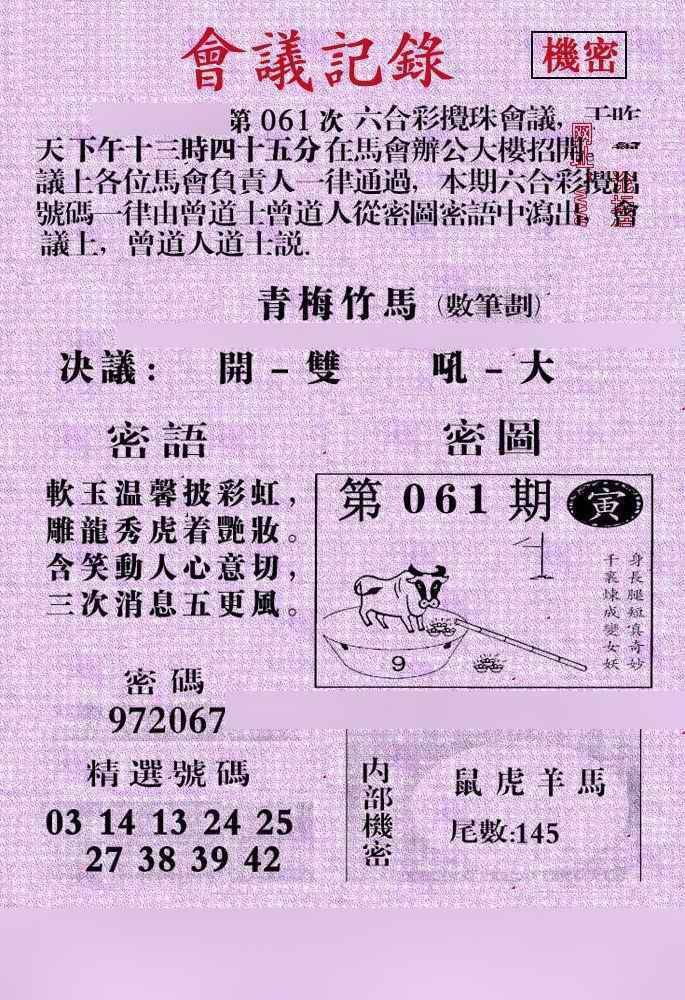 會議記錄
機密
第061次 六合彩攪珠會議,
天下午十三時四十五分在馬會辦公大樓招開
議上各位馬會負責人一律通過, 本期六合彩攪出
號碼一律由曾道士曾道人從密圖密語中瀉出, 會
議上, 曾道人道士説.
青梅竹馬 (數筆劃)
决議: 開-雙 吼-大
密語
軟玉温馨披彩虹,
雕龍秀虎着艷妝。
含笑動人心意切,
三次消息五更風。
密圖
第061期 寅
身長腿短真奇妙
千裏煉成變女妖
9
密碼
972067
精選號碼
03 14 13 24 25
27 38 39 42
内部機密
鼠虎羊馬
尾數:145